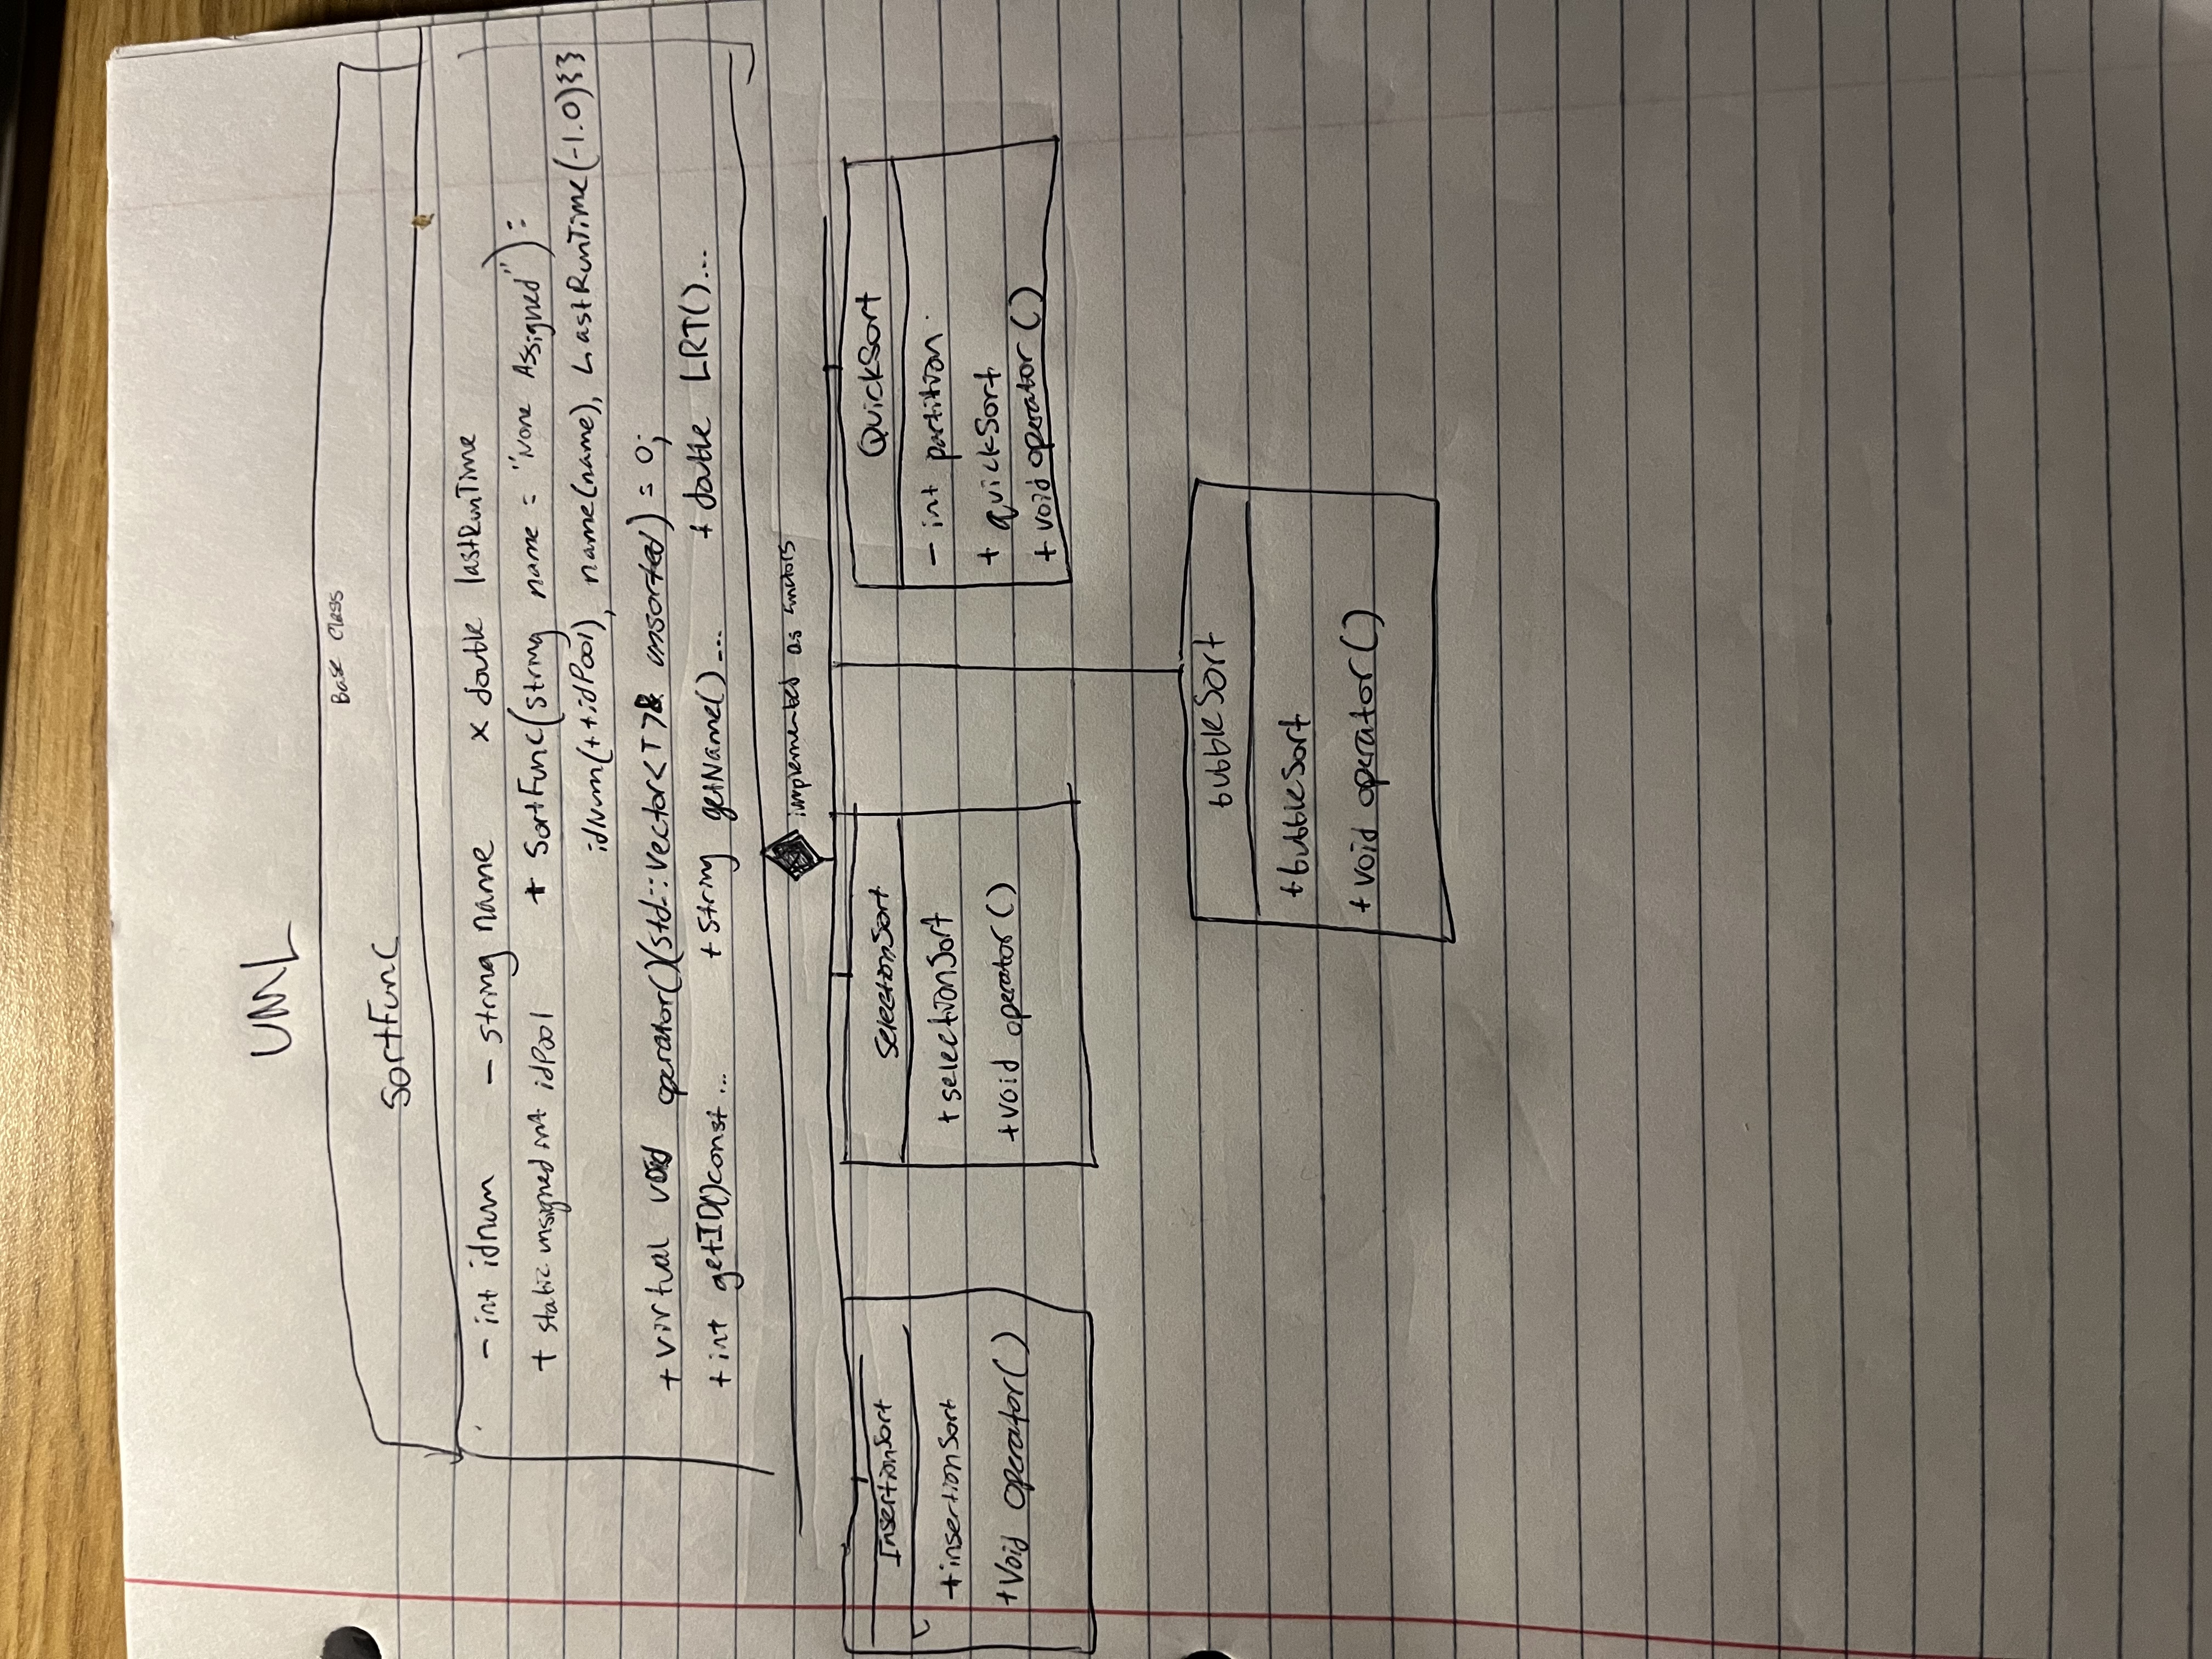 UML
Base Class
SortFunc
- int idnum - string name x double lastRunTime
+ static unsigned int idPool + SortFunc(string name = "None Assigned"):
idNum(++idPool), name(name), LastRunTime(-1.0){}
+ virtual void operator()(std::vector<T>& unsorted) = 0;
+ int getID()const ... + string getName() ... + double LRT()...
implemented as
InsertionSort
+ insertionSort
+ Void operator()
SelectionSort
+ selectionSort
+ void operator()
QuickSort
- int partition
+ quickSort
+ void operator()
bubbleSort
+ bubbleSort
+ void operator()